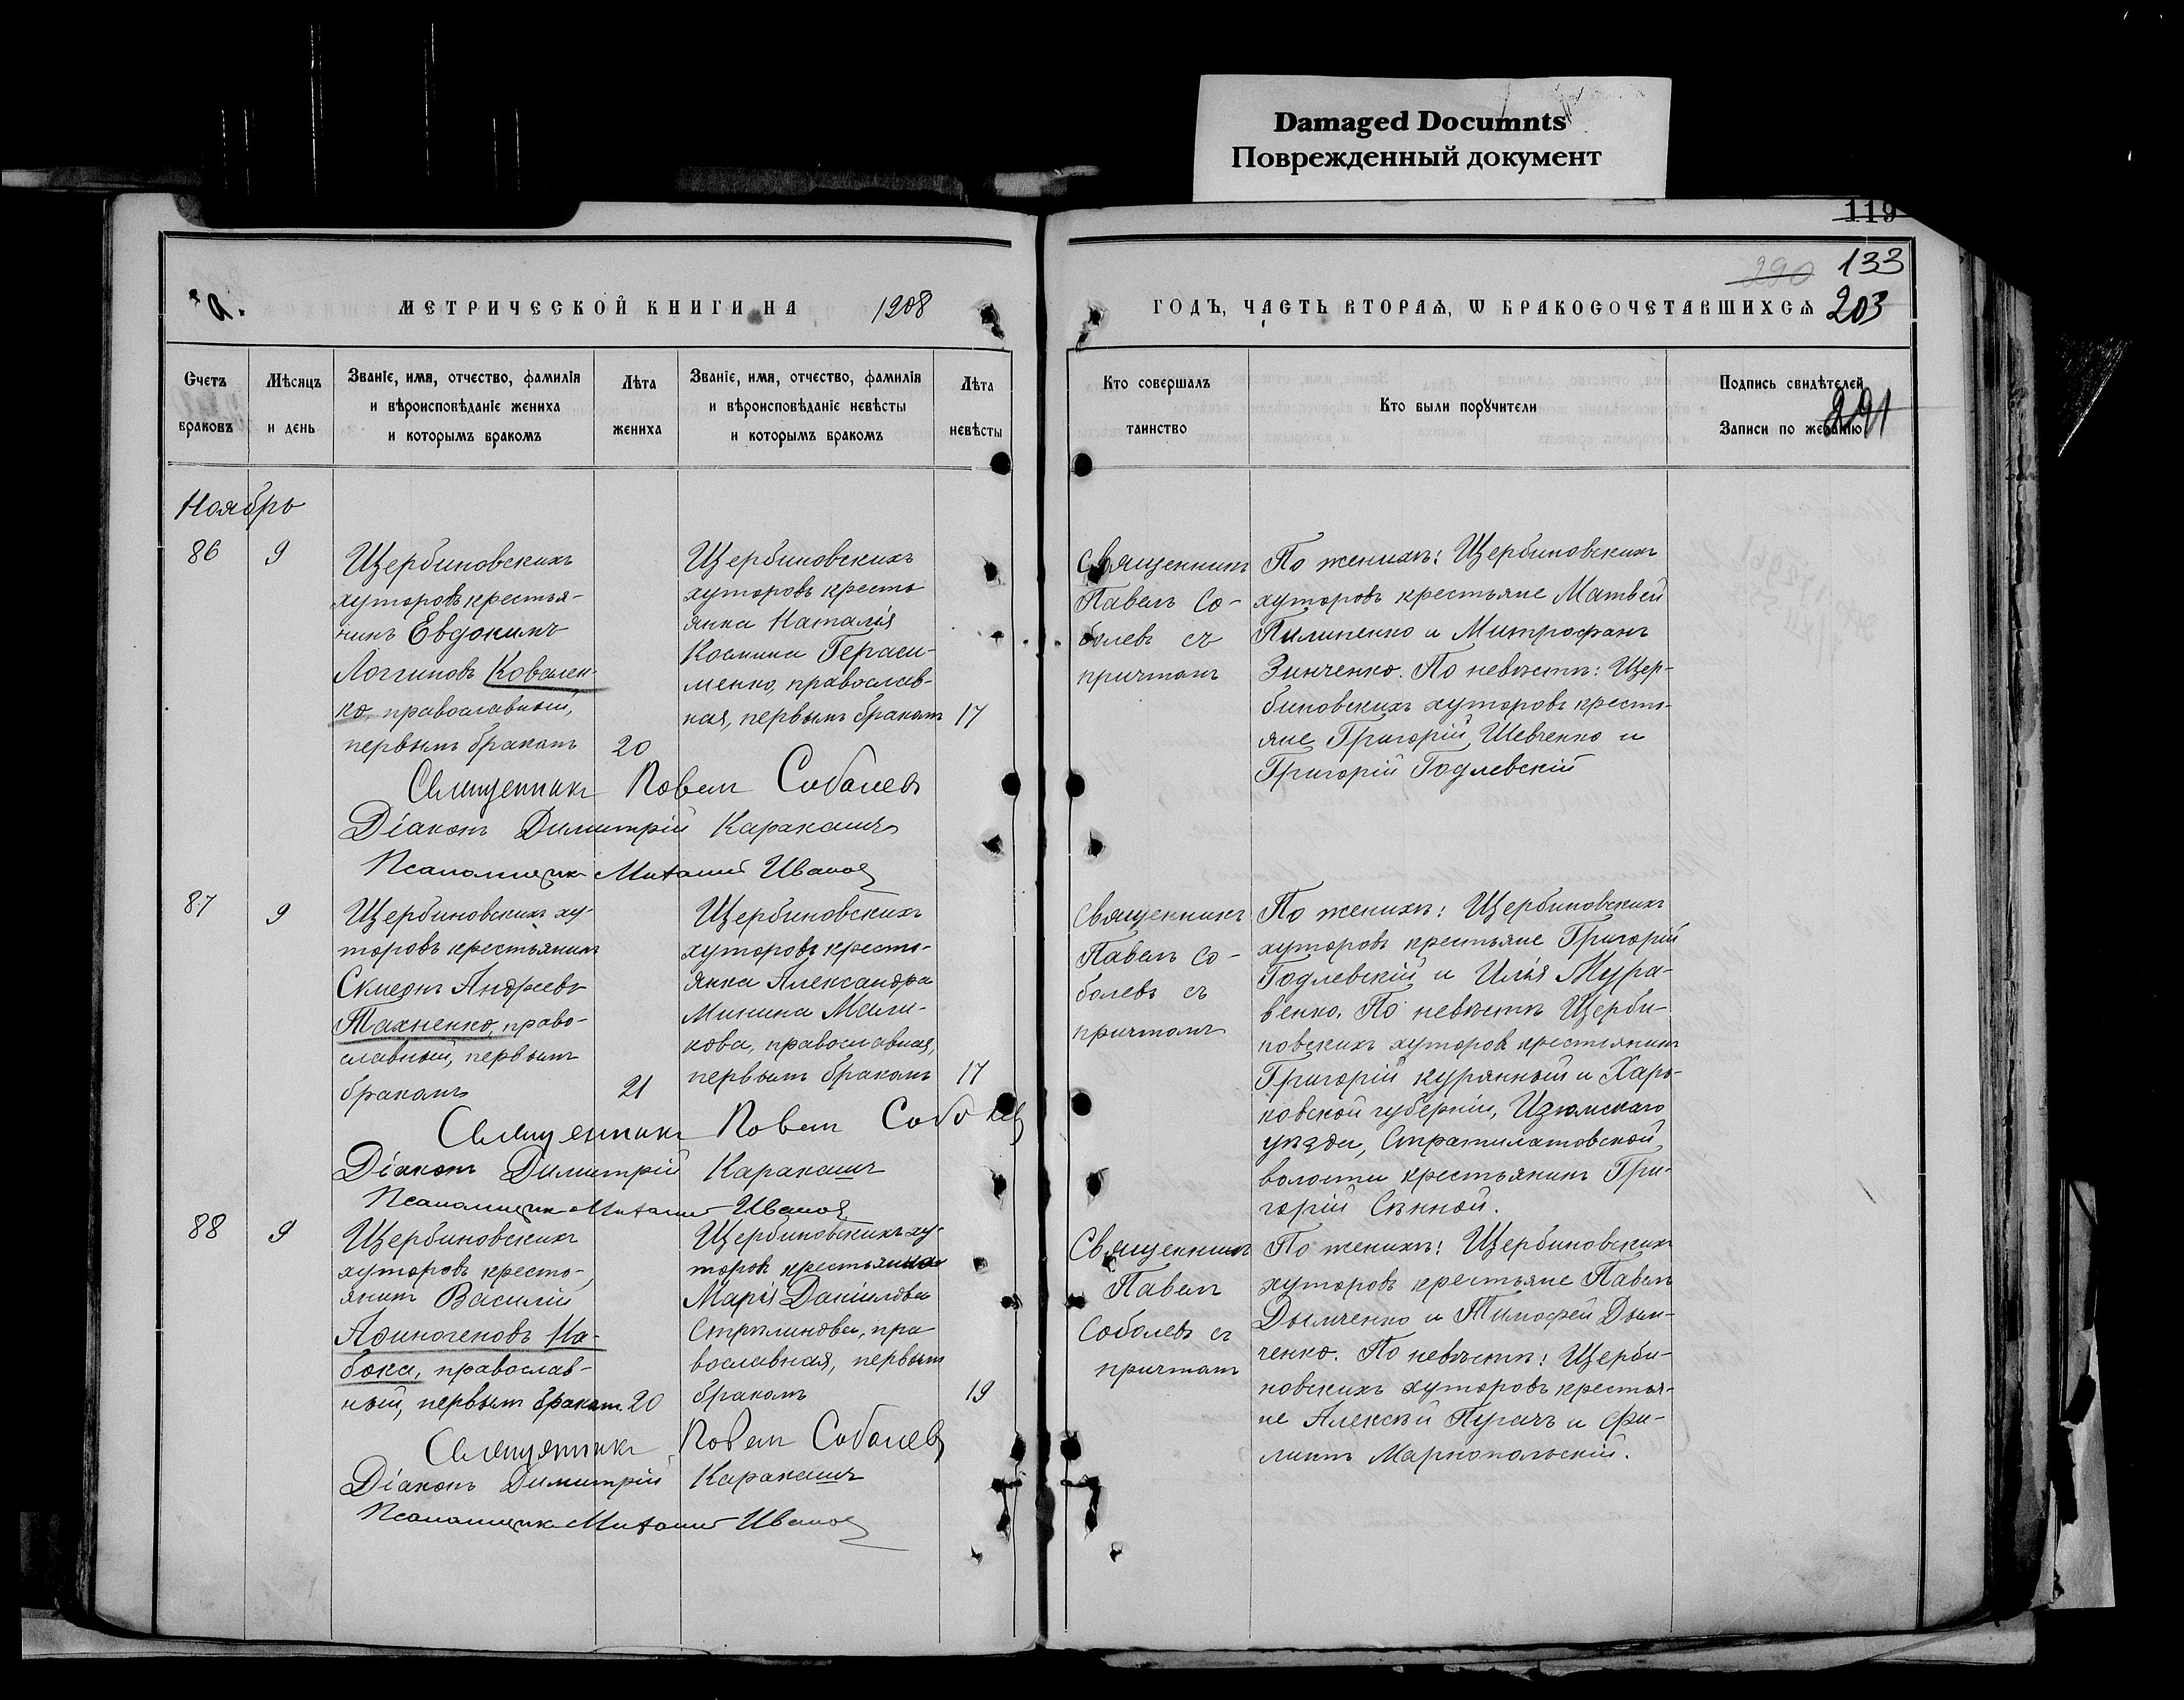 Damaged Documnts
Поврежденный документ
119
290 133
МЕТРИЧЕСКОЙ КНИГИ НА 1908
ГОДЪ, ЧАСТЬ ВТОРАЯ, Ѡ БРАКОСОЧЕТАВШИХСЯ 203
Счетъ браковъ
Мѣсяцъ и день
Званіе, имя, отчество, фамилія
и вѣроисповѣданіе жениха
и которымъ бракомъ
Лѣта жениха
Званіе, имя, отчество, фамилія
и вѣроисповѣданіе невѣсты
и которымъ бракомъ
Лѣта невѣсты
Кто совершалъ
таинство
Кто были порꙋчители
Подпись свидѣтелей
Записи по желанію
291
Ноябрь
86
9
Щербиновскихъ
хуторовъ крестья-
нинъ Евдокимъ
Логгиновъ Ковален-
ко, православный,
первымъ бракомъ
20
Щербиновскихъ
хуторовъ кресть
янка Наталія
Космина Гераси-
менко, православ-
ная, первымъ бракомъ
17
Священникъ
Павелъ Со-
болевъ съ
причтомъ
По женихѣ: Щербиновскихъ
хуторовъ крестьяне Матвей
Пилипенко и Митрофанъ
Зинченко. По невѣстѣ: Щер-
биновскихъ хуторовъ кресть-
яне Григорій Шевченко и
Григорій Годлевскій
Священникъ Павелъ Соболевъ
Діаконъ Димитрій Каракашъ
Псаломщикъ Ивановъ
87
9
Щербиновскихъ ху-
торовъ крестьянинъ
Симеонъ Андреевъ
Махненко, право-
славный, первымъ
бракомъ
21
Щербиновскихъ
хуторовъ кресть-
янка Александра
Минина Мали-
кова, православная,
первымъ бракомъ
17
Священникъ
Павелъ Со-
болевъ съ
причтомъ
По женихѣ: Щербиновскихъ
хуторовъ крестьяне Григорій
Годлевскій и Илья Мура-
венко. По невѣстѣ Щерби-
новскихъ хуторовъ крестьянинъ
Григорій Курянный и Харь-
ковской губерніи, Изюмскаго
уѣзда, Стратилатовской
волости крестьянинъ Гри-
горій Сѣнной.
Священникъ Павелъ Соболевъ
Діаконъ Димитрій Каракашъ
Псаломщикъ Ивановъ
88
9
Щербиновскихъ
хуторовъ кресть-
янинъ Василій
Афиногеновъ На-
бока, православ-
ный, первымъ бракомъ
20
Щербиновскихъ ху-
торовъ крестьянка
Марія Даніилова
Стрѣлинова, пра
вославная, первымъ
бракомъ
19
Священникъ
Павелъ
Соболевъ съ
причтомъ
По женихѣ: Щербиновскихъ
хуторовъ крестьяне Павелъ
Дымченко и Тимофей Дым-
ченко. По невѣстѣ: Щерби-
новскихъ хуторовъ крестья-
не Алексѣй Пугачъ и Фи-
липъ Маркопольскій.
Священникъ Павелъ Соболевъ
Діаконъ Димитрій Каракашъ
Псаломщикъ Ивановъ